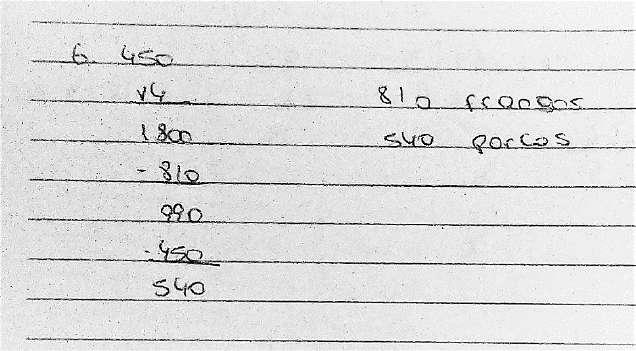 6. 450
x4 810 frangos
1800 540 porcos
- 810
990
- 450
540